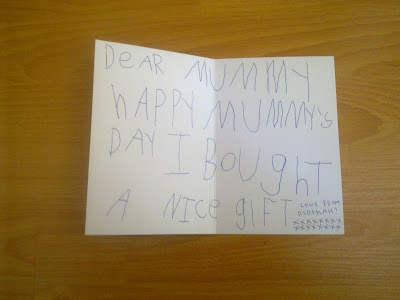 DeAR MUMMY
hAPPY MUMMY's
DAY I BOUghT
A NICe gIFT
LOVE FROM
XXXXXXXXX
XXXXXXXXX